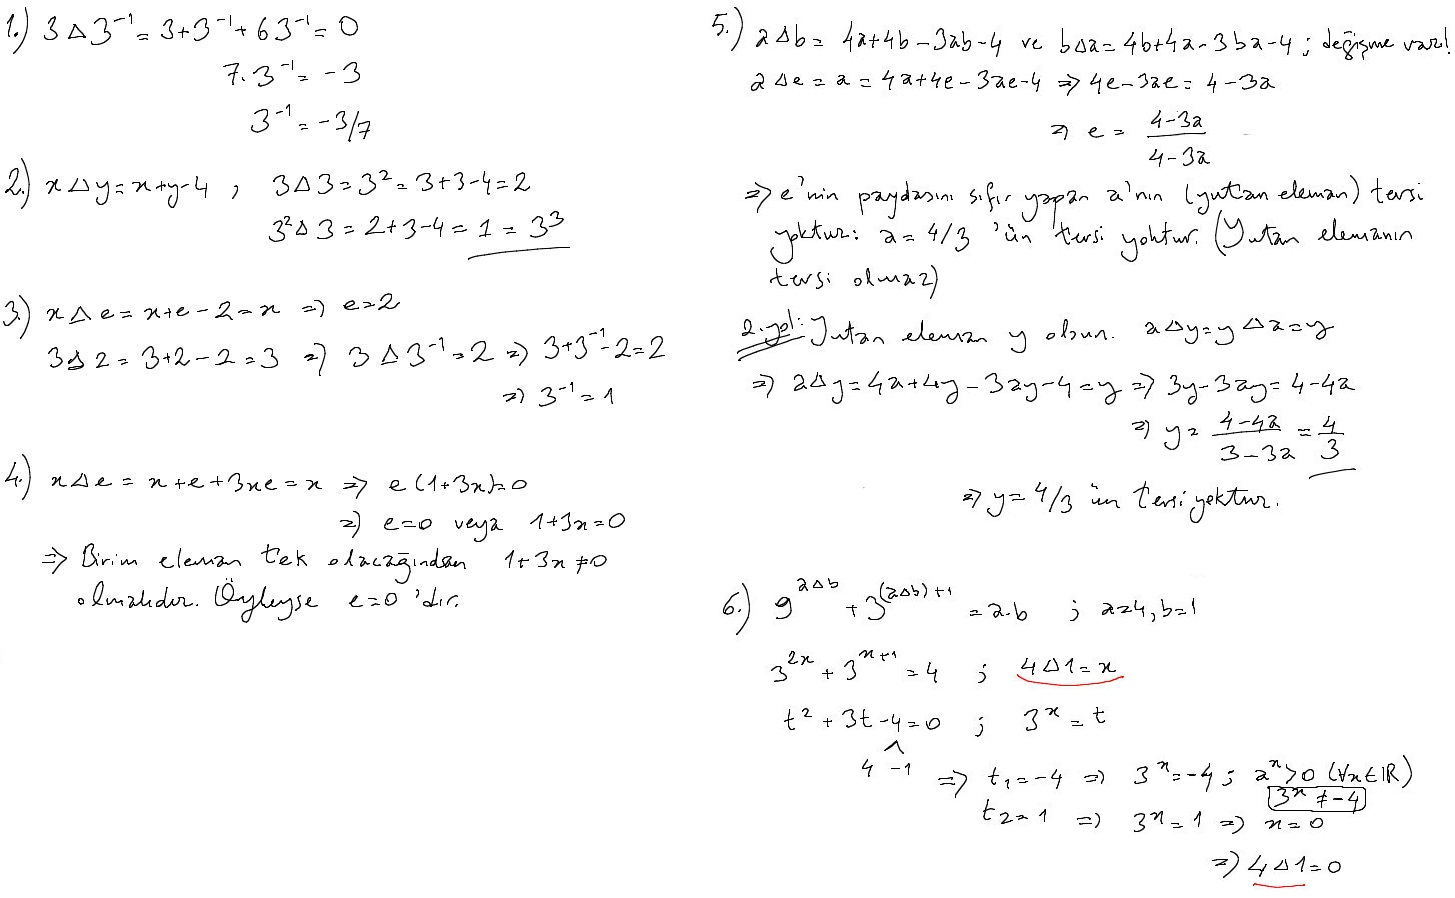 1.) 3 Δ 3⁻¹ = 3+3⁻¹+63⁻¹ = 0
7.3⁻¹ = -3
3⁻¹ = -3/7
2.) x Δ y = x+y-4 , 3Δ3 = 3² = 3+3-4 = 2
3²Δ3 = 2+3-4 = 1 = 3³
3.) x Δ e = x+e-2 = x ⇒ e=2
3Δ2 = 3+2-2 = 3 ⇒ 3 Δ 3⁻¹ = 2 ⇒ 3+3⁻¹-2=2
⇒ 3⁻¹ = 1
4.) xΔe = x+e+3xe = x ⇒ e(1+3x)=0
⇒ e=0 veya 1+3x=0
⇒ Birim eleman tek olacağından 1+3x≠0
olmalıdır. Öyleyse e=0 'dır.
5.) aΔb = 4a+4b-3ab-4 ve bΔa = 4b+4a-3ba-4 ; değişme var!
aΔe = a = 4a+4e-3ae-4 ⇒ 4e-3ae = 4-3a
⇒ e = (4-3a)/(4-3a)
⇒ e'nin paydasını sıfır yapan a'nın (yutan eleman) tersi
yoktur: a=4/3 'ün tersi yoktur. (Yutan elemanın
tersi olmaz)
2.yol: Yutan eleman y olsun. aΔy=yΔa=y
⇒ aΔy=4a+4y-3ay-4=y ⇒ 3y-3ay=4-4a
⇒ y = (4-4a)/(3-3a) = 4/3
⇒ y=4/3 ün tersi yoktur.
6.) 9^(aΔb) + 3^((aΔb)+1) = a.b ; a=4, b=1
3^(2x) + 3^(x+1) = 4 ; 4Δ1=x
t²+3t-4=0 ; 3ˣ=t
4 -1
⇒ t₁=-4 ⇒ 3ˣ=-4 ; aˣ>0 (∀x∈ℝ)
3ˣ≠-4
t₂=1 ⇒ 3ˣ=1 ⇒ x=0
⇒ 4Δ1=0